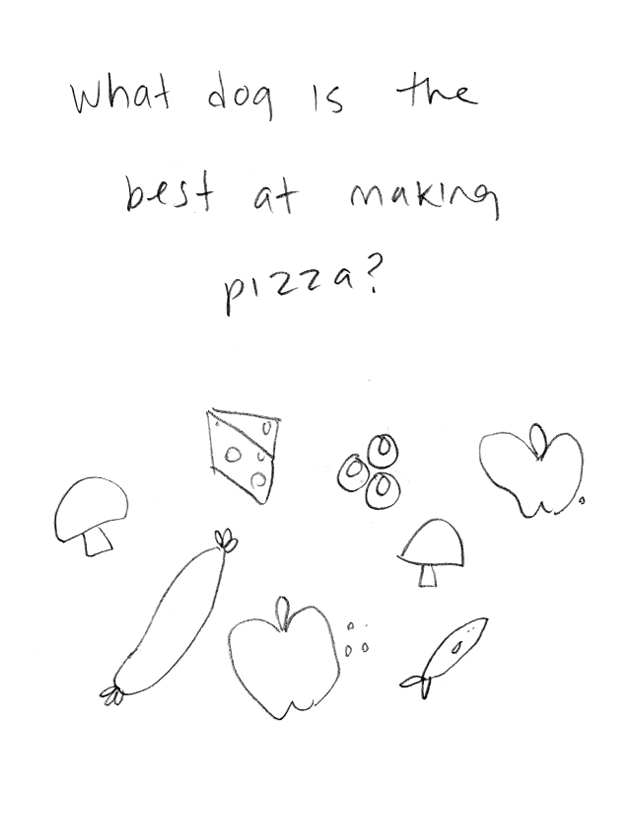 What dog is the
best at making
pizza?